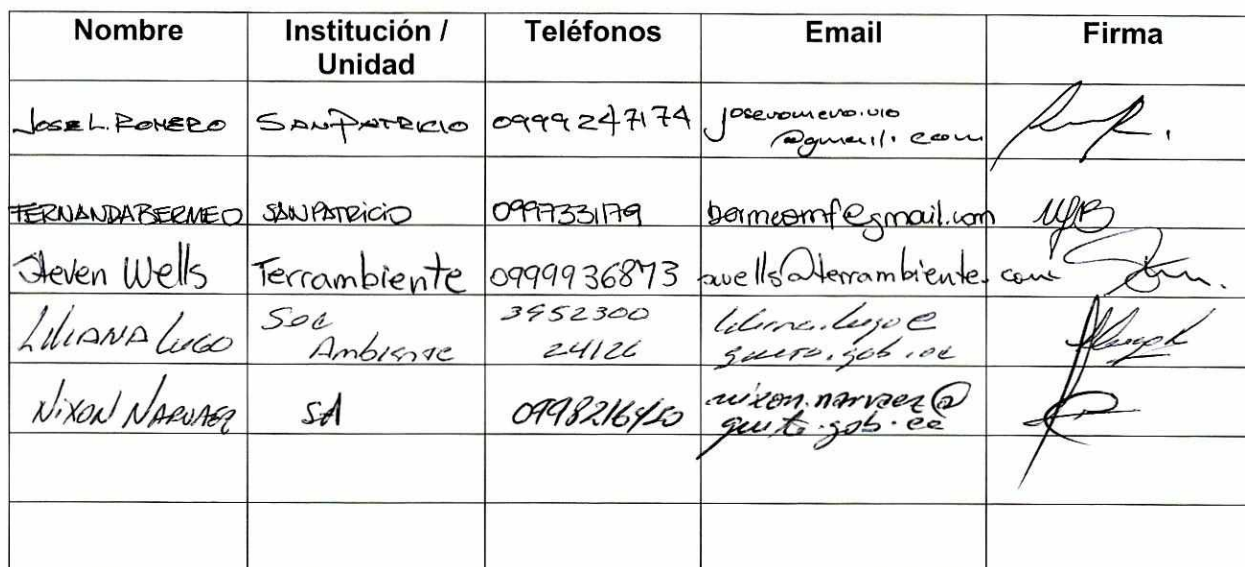 Nombre Institución / Unidad Teléfonos Email Firma
JOSE L. ROMERO SAN PATRICIO 0999247174 joseromero.uio
@gmail.com
FERNANDA BERMEO SAN PATRICIO 0997331179 bermeomf@gmail.com
Steven Wells Terrambiente 0999936873 swells@terrambiente.com
LILIANA LUGO Sec 3952300 liliana.lugo@
Ambiente 24126 quito.gob.ec
NIXON NARVAEZ SA nixon.narvaez@
quito.gob.ec